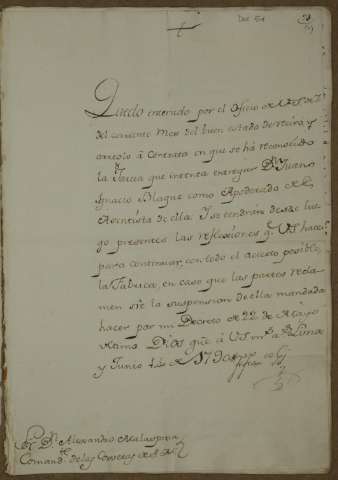 Doc 54
Quedo enterado por el Oficio de VS. de 7
del corriente Mes del buen estado de recivo, y
arreglo á Contrata en que se há reconocido
la Jarcia que intenta entregar Dn. Juan
Ignacio Blaque como Apoderado del
Asentista de ella: Y se tendrán desde lue-
go presentes las reflecciones q.e VS. hace
para continuar, con todo el acierto posible,
la Fabrica, en caso que las partes recla-
men sre. la suspension de ella mandada
hacer por mi Decreto de 22 de Mayo
ultimo. Dios gue. á VS. ms. as. Lima
y Junio 12 de 1790
Sor. Dn. Alexandro Malaspina
Comand.te de las Corvetas de S. M.